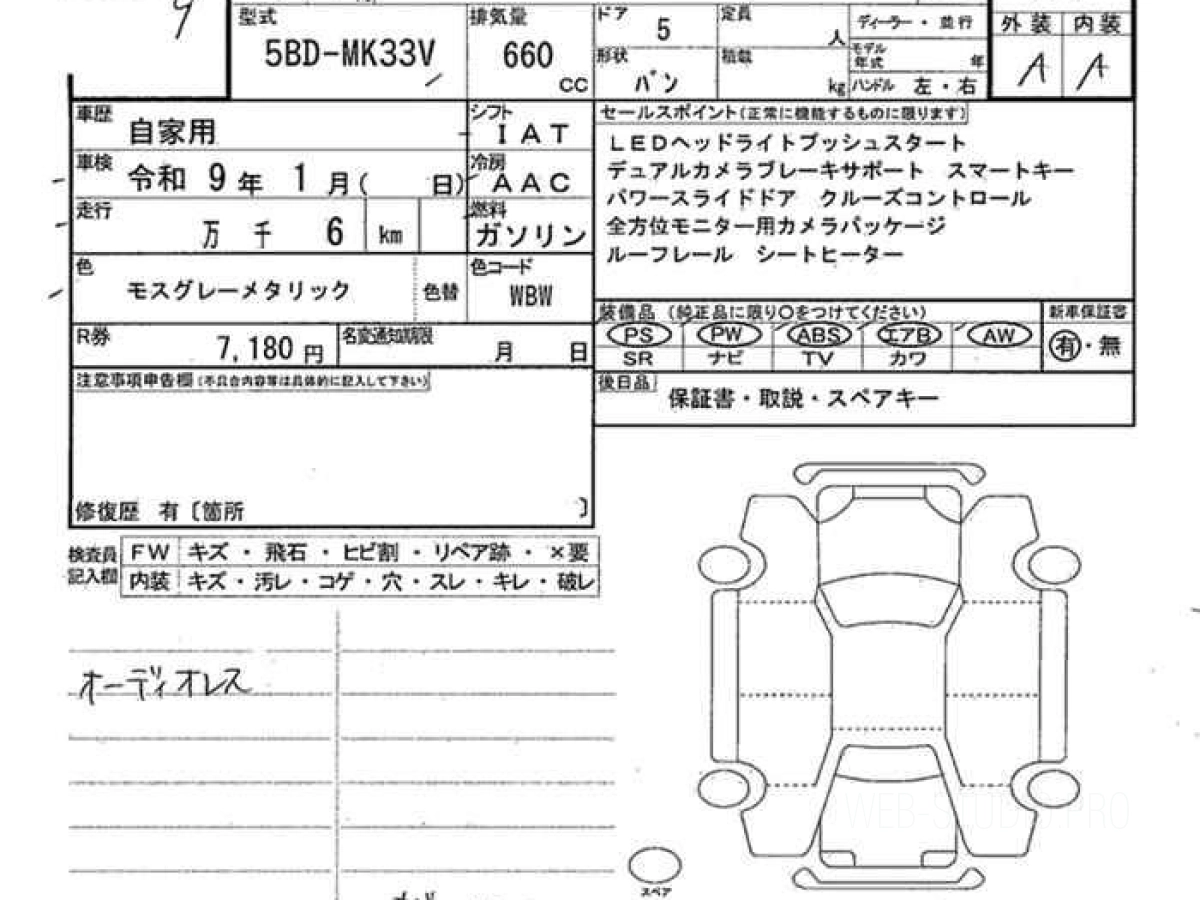 型式 排気量 ドア 定員 ディーラー・並行 外装 内装
5BD-MK33V 660 CC 5 人 モデル年式 年 A A
形状 バン 積載 kg ハンドル 左・右
車歴 自家用 シフト IAT
セールスポイント(正常に機能するものに限ります)
LEDヘッドライトプッシュスタート
車検 令和 9 年 1 月( 日) 冷房 AAC
デュアルカメラブレーキサポート スマートキー
パワースライドドア クルーズコントロール
走行 万 千 6 km 燃料 ガソリン
全方位モニター用カメラパッケージ
ルーフレール シートヒーター
色 モスグレーメタリック 色替 色コード WBW
装備品 (純正品に限り○をつけてください) 新車保証書
PS PW ABS エアB AW 有・無
SR ナビ TV カワ
R券 7,180 円 名変通知期限 月 日
注意事項申告欄(不具合内容等は具体的に記入して下さい)
後日品 保証書・取説・スペアキー
修復歴 有〔箇所 〕
検査員記入欄
FW キズ・飛石・ヒビ割・リペア跡・×要
内装 キズ・汚レ・コゲ・穴・スレ・キレ・破レ
オーディオレス
WEB-STUDIO.PRO
スペア